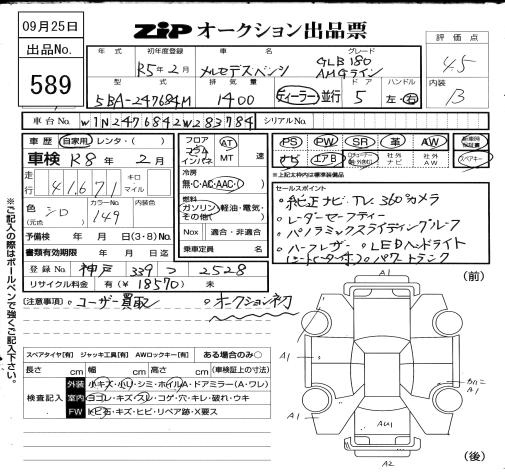 09月25日
出品No.
589
ZIP オークション出品票
評価点
4.5
内装
B
年式 初年度登録 車名 グレード
R5年2月 メルセデスベンツ GLB180 AMGライン
型式 排気量 ドア ハンドル
5BA-247684M 1400 ディーラー・並行 5 左・右
車台No. W1N2476842W283784 シリアルNo.
車歴 自家用・レンタ・( )
車検 R8年2月
走行 41,671 キロ マイル
色(元色) シロ カラーNo. 149 内装色
予備検 年 月 日(3・8)No.
書類有効期限 年 月 日迄
登録No. 神戸 339 つ 2528
リサイクル料金 有(¥18570) 未
フロア コラム インパネ AT MT 速
冷房 無・C・AC・AAC・( )
燃料 ガソリン・軽油・電気・その他( )
Nox 適合・非適合
乗車定員 名
PS PW SR 革 AW
ナビ エアB 社外ナビ 社外AW
スペアキー
※上記太枠内は標準装備品
セールスポイント
・純正ナビ、TV、360°カメラ
・レーダーセーフティー
・パノラミックスライディングルーフ
・ハーフレザー ・LEDヘッドライト
(シートヒーター付) ・パワートランク
(注意事項) ・ユーザー買取 ・オークション初
※ご記入の際はボールペンで強くご記入下さい。
スペアタイヤ[有] ジャッキ工具[有] AWロックキー[有] ある場合のみ○
長さ cm 幅 cm 高さ cm (車検証上の寸法)
検査記入
外装 小キズ・小リ・シミ・ホイルA・ドアミラー(A・ワレ)
室内 ヨゴレ・キズ・スレ・コゲ・穴・キレ・破れ・ウキ
FW トビ石・キズ・ヒビ・リペア跡・X要ス
(前)
A1
A1
A1
A1
A1
AU1
A2
(後)